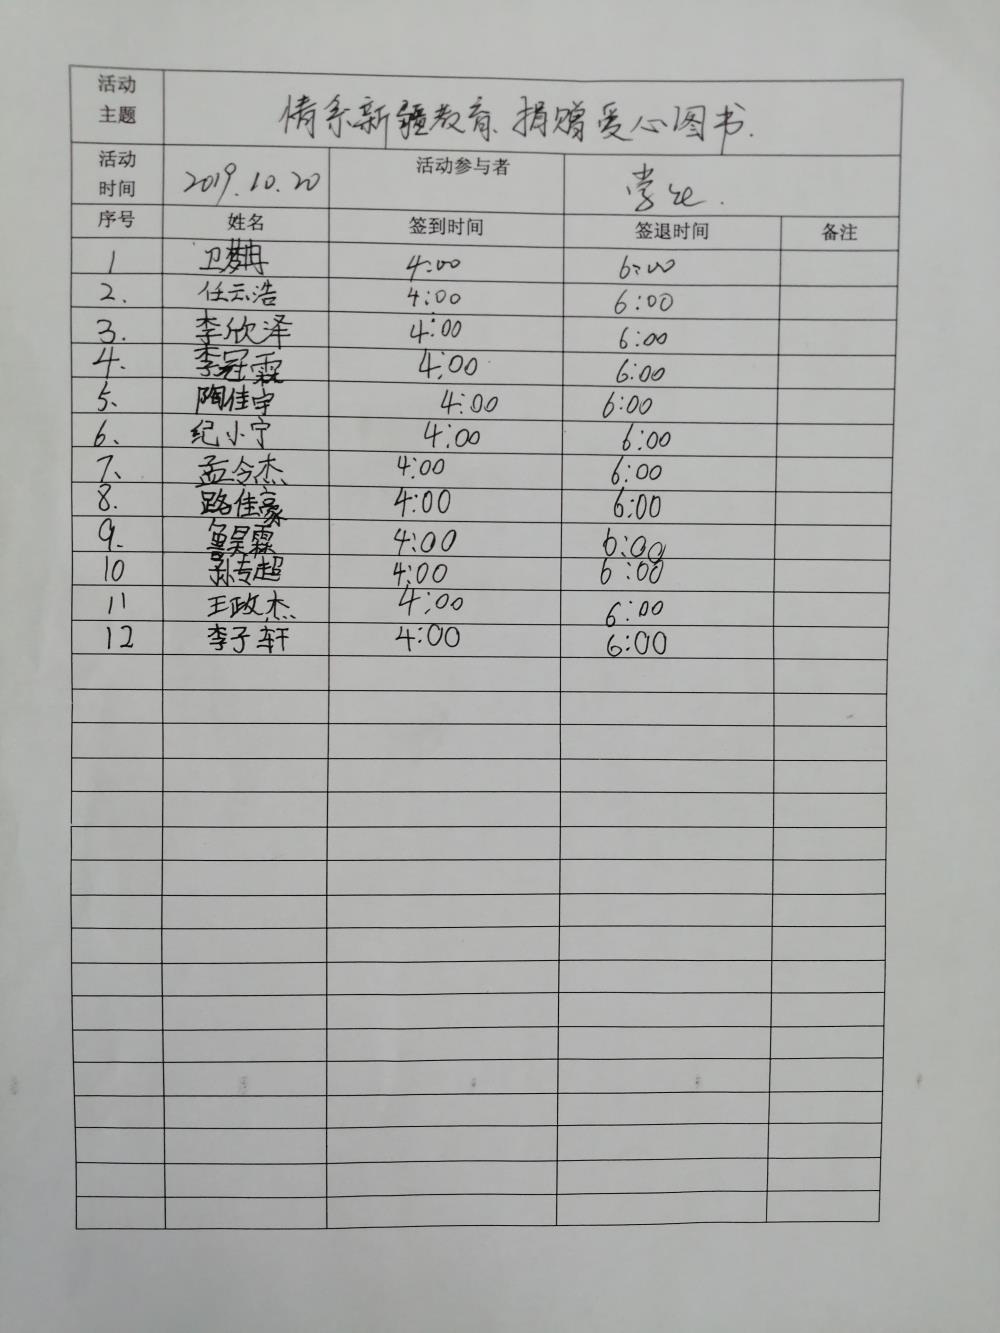 活动主题 情系新疆教育、捐赠爱心图书.
活动时间 2019.10.20 活动参与者 学生.
序号 姓名 签到时间 签退时间 备注
1 卫梦冉 4:00 6:00
2. 任云浩 4:00 6:00
3. 李欣泽 4:00 6:00
4. 李冠霖 4:00 6:00
5、 陶佳宇 4:00 6:00
6、 纪小宁 4:00 6:00
7、 孟令杰 4:00 6:00
8. 路佳豪 4:00 6:00
9. 鲁昊霖 4:00 6:00
10 孙专超 4:00 6:00
11 王政杰 4:00 6:00
12 李子轩 4:00 6:00